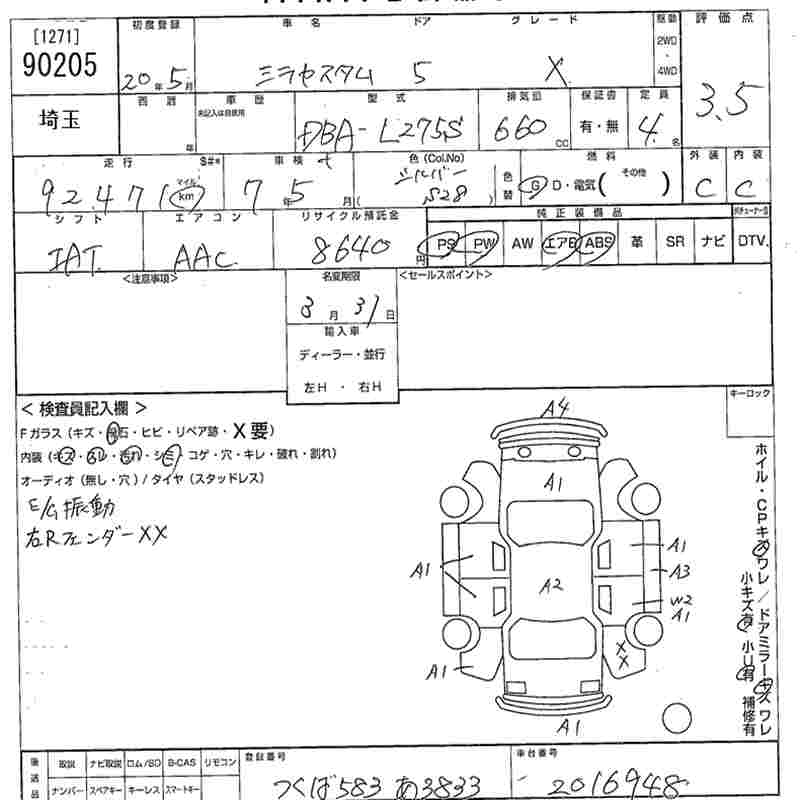 [1271]
90205
埼玉
初度登録
20年5月
車名 ドア グレード
ミラカスタム 5 X
駆動
2WD
・
4WD
評価点
3.5
年
車歴
未記入は自家用
型式
DBA-L275S
660cc
保証書
有・無
定員
4名
走行
92,471
マイル
km
$#*
車検
7年5月
色(Col.No)
シルバー
(S28)
色替
燃料
G D・電気(その他)
外装
C
内装
C
シフト
IAT
エアコン
AAC
リサイクル預託金
8640円
純正装備品
PS PW AW エアB ABS 革 SR ナビ
DTV.
<注意事項>
名変期限
8月31日
輸入車
ディーラー・並行
左H・右H
<セールスポイント>
キーロック
< 検査員記入欄 >
Fガラス(キズ・飛石・ヒビ・リペア跡・X要)
内装(キズ・スレ・汚れ・シミ・コゲ・穴・キレ・破れ・割れ)
オーディオ(無し・穴)/タイヤ(スタッドレス)
E/G振動
右Rフェンダー XX
A4
A1
A1
A1
A3
A2
W2
A1
X
X
A1
A1
ホイル・CPキズワレ/ドアミラーキズワレ
小キズ有 小U有 補修有
後送品
取説 ナビ取説 ロム/SD B-CAS リモコン
ナンバー スペアキー キーレス スマートキー
登録番号
つくば583 あ3833
車台番号
2016948